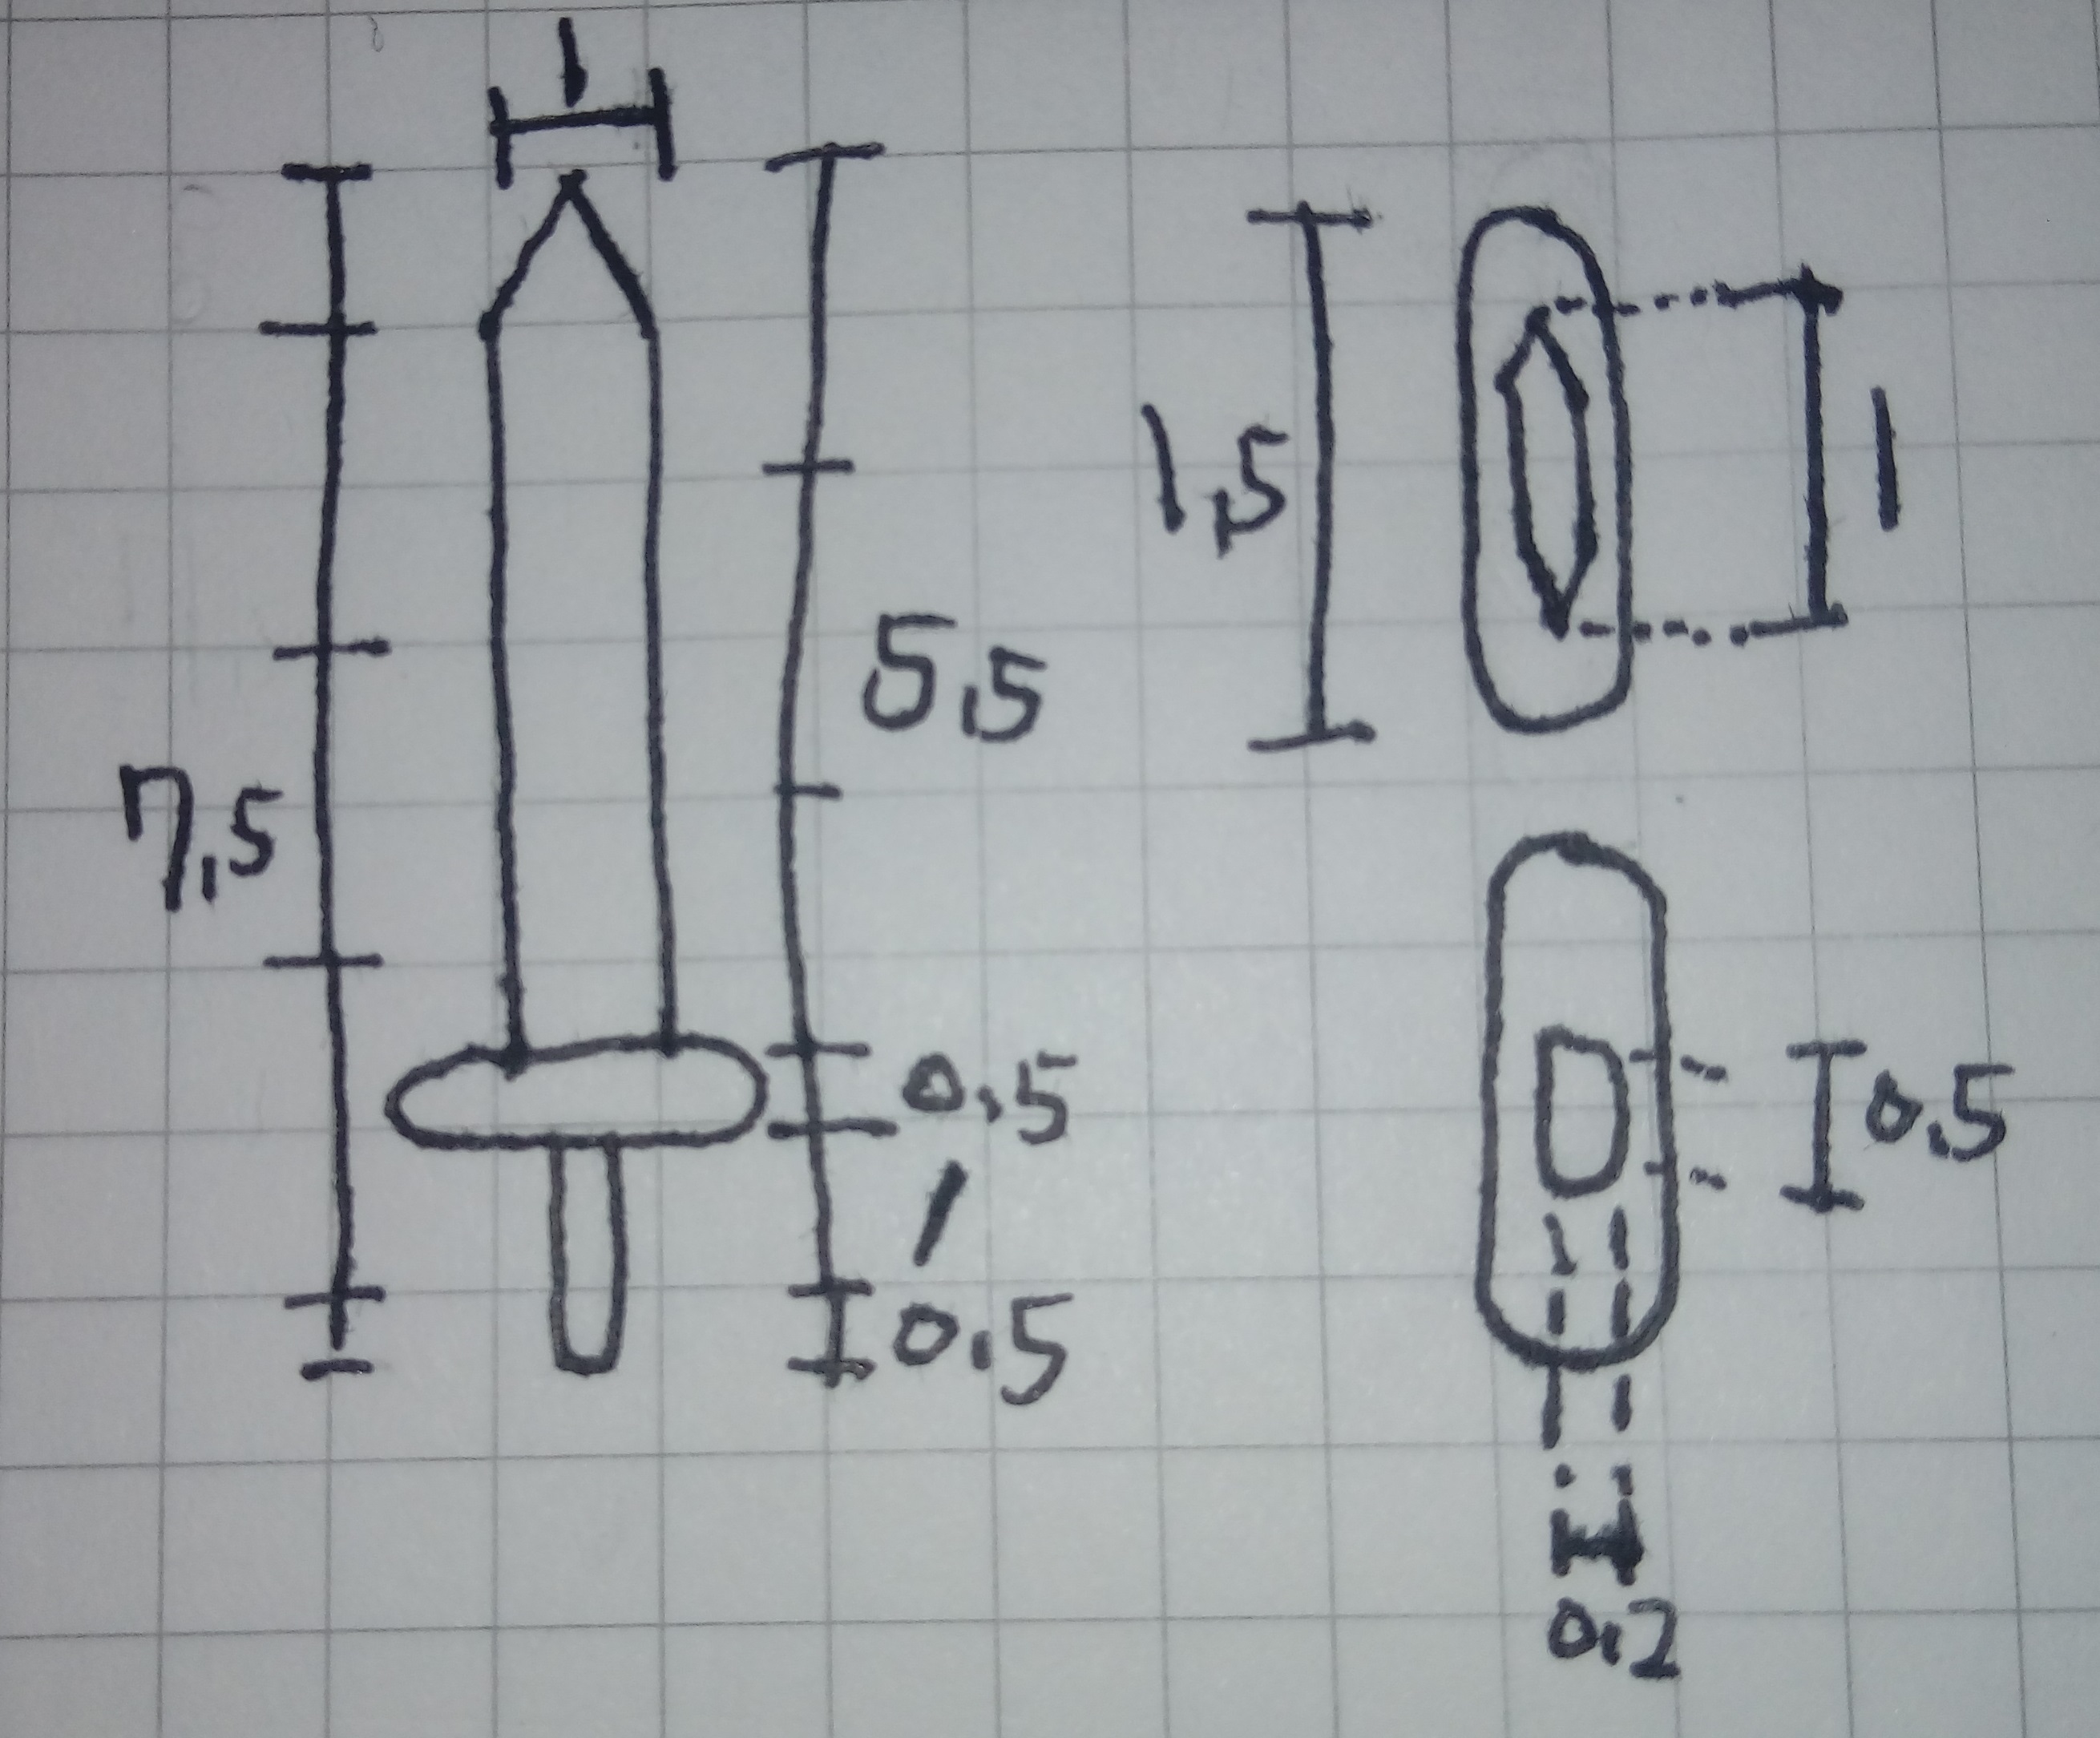 1
7,5
5,5
0.5
1
0.5
1,5
1
0.5
0.2